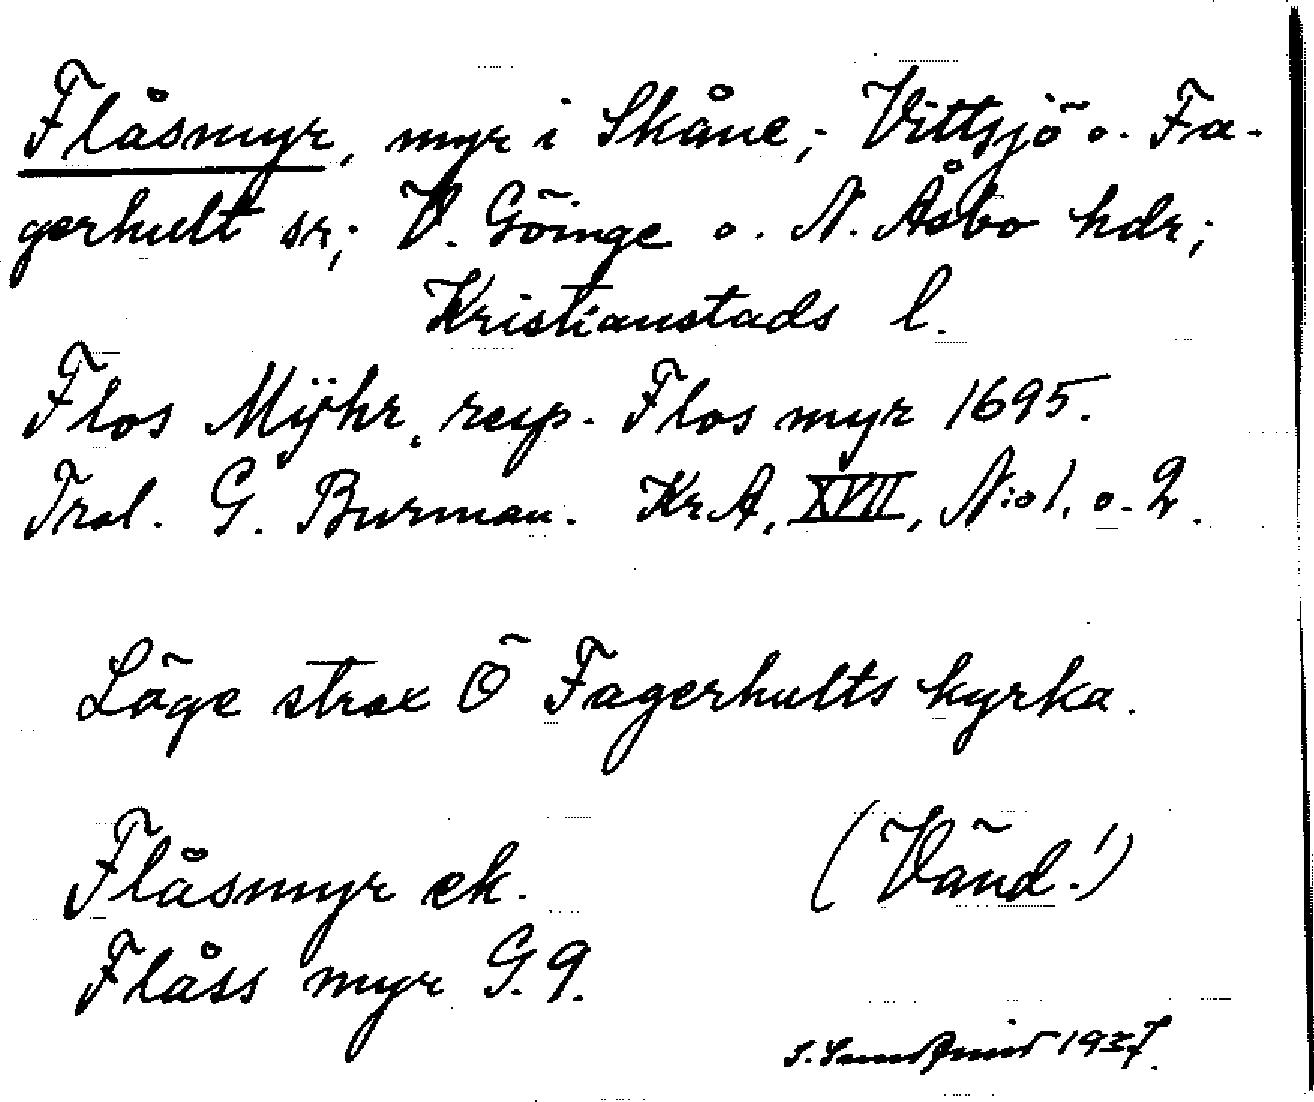 Flåsmyr, myr i Skåne; Vittsjö o. Fa-
gerhult sr; V. Göinge o. N. Åsbo hdr;
Kristianstads l.
Flos Mÿhr, resp. Flos myr 1695.
Tral. G. Burman. KrA, XVII, N:o 1. o. 2.
Läge strax Ö Fagerhults kyrka.
Flåsmyr ek. (Vänd!)
Flåss myr G. 9.
S. 1937.